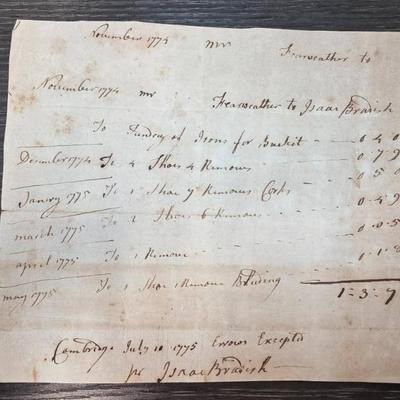 November 1774 mr Fearweather to
November 1774 mr Fearweather to Isaac Bradish
To Sundrey of Irons for Bucket - - 0 4 0
December 1774 To 4 Shoes 4 Removes - - - 0 7 9
Janury 1775 To 1 Shoe 7 Removes Corks - - 0 5 0
march 1775 To 2 Shoes 6 Removes - - - 0 4 9
april 1775 To 1 Remove - - - 0 0 5
may 1775 To 1 Shoe 1 Remove Bleeding - 0 1 8
1=3=7
Cambridge July 10 1775 Errors Excepted
pr Isaac Bradish